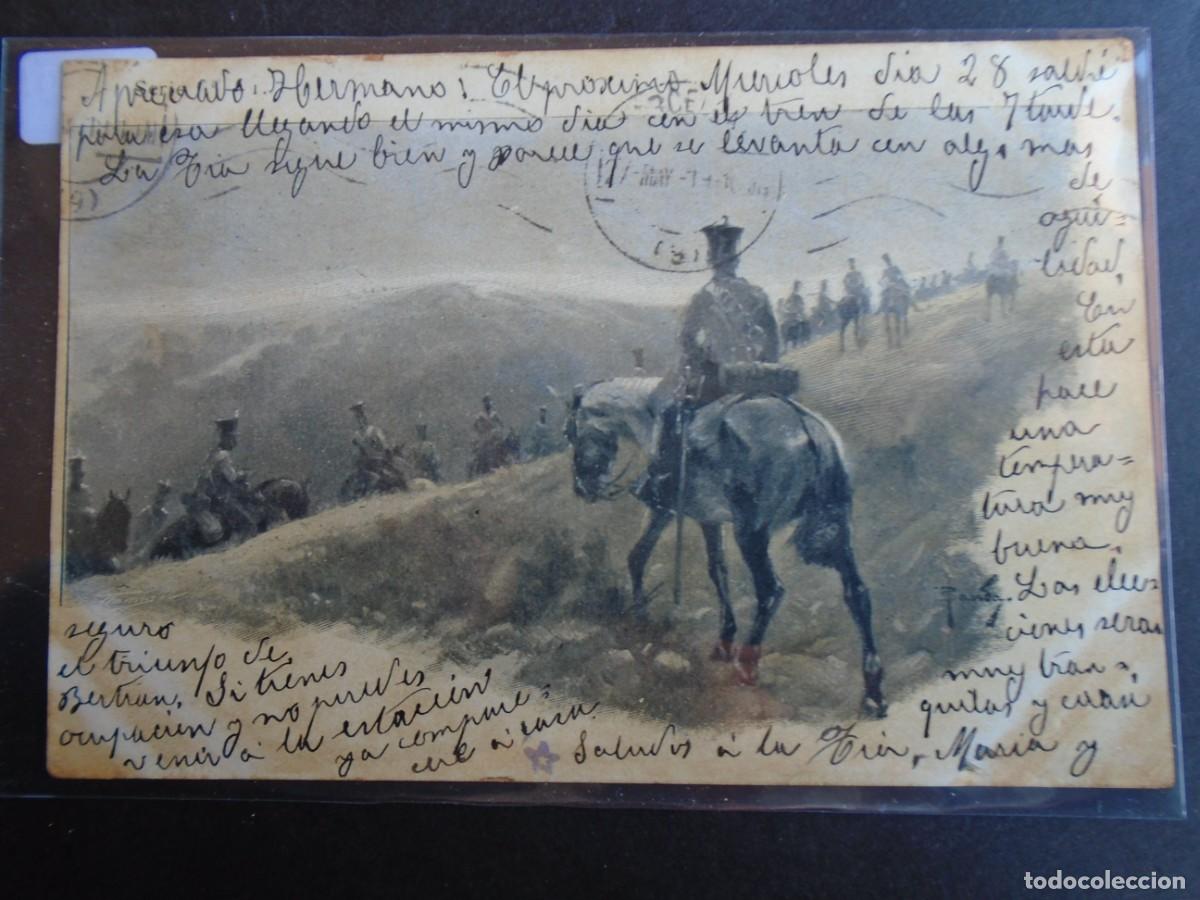 Apreciado Hermano: El proximo Miercoles dia 28 saldré
para esa llegando el mismo dia con el tren de las 7 tarde.
La Tia sigue bien y parece que se levanta con algo mas
de
agui-
lidad,
En
esta
hace
una
tempera=
tura muy
buena.
Las elec-
ciones seran
muy tran=
quilas y cuasi
seguro
el triunfo de
Bertran. Si tienes
ocupación y no puedes
venir á la estación
ya compare=
cere á casa.
Saludos á la Tia, Maria y
todocoleccion